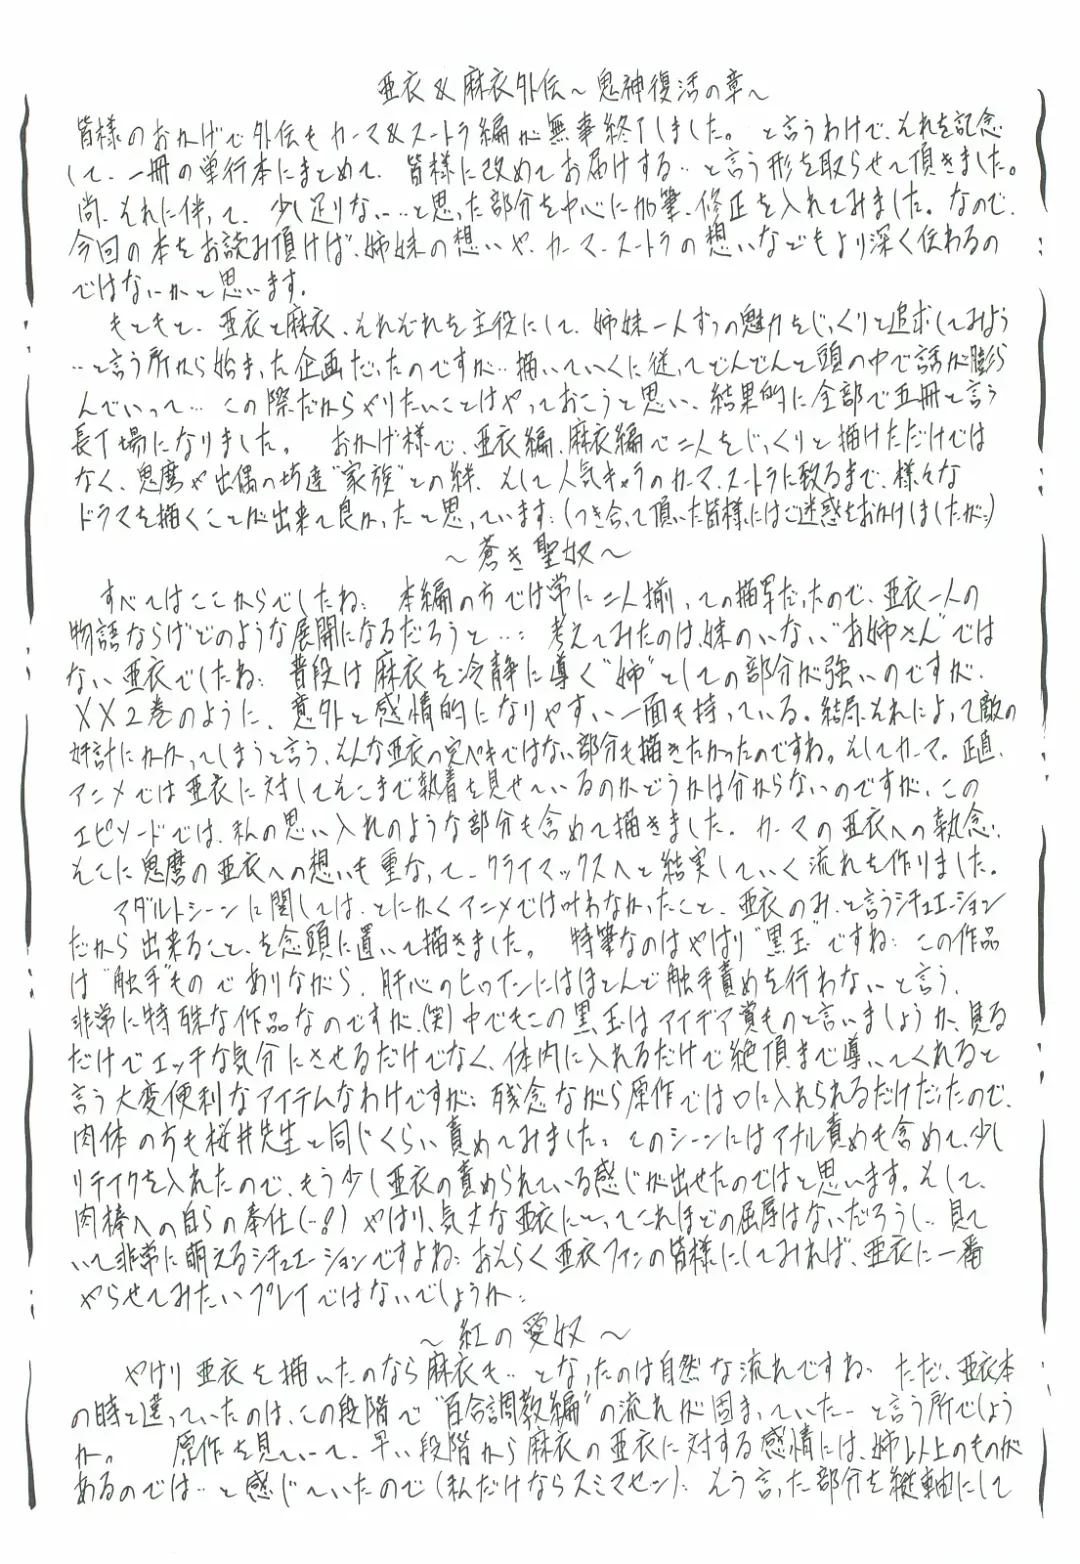 亜衣&麻衣外伝～鬼神復活の章～
皆様のおかげで外伝もカーマ&スートラ編が無事終了しました。 と言うわけで、それを記念
して、一冊の単行本にまとめて、皆様に改めてお届けする…と言う形を取らせて頂きました。
尚、それに伴って、少し足りない…と思った部分を中心に加筆、修正を入れてみました。なので、
今回の本をお読み頂ければ、姉妹の想いや、カーマ、スートラの想いなどもより深く伝わるの
ではないかと思います。
もともと、亜衣と麻衣、それぞれを主役にして、姉妹一人ずつの魅力をじっくりと追求してみよう
…と言う所から始まった企画だったのですが…描いていくに従ってどんどんと頭の中で話が膨ら
んでいって…この際だからやりたいことはやっておこうと思い、結果的に全部で五冊と言う
長丁場になりました。 おかげ様で、亜衣編、麻衣編で二人をじっくりと描けただけでは
なく、鬼麿や出偶の坊達"家族"との絆、そして人気キャラのカーマ、スートラに致るまで、様々な
ドラマを描くことが出来て良かったと思っています:(つき合って頂いた皆様にはご迷惑をおかけしましたが:)
～蒼き聖奴～
すべてはここからでしたね: 本編の方では常に二人揃っての描写だったので、亜衣一人の
物語ならばどのような展開になるだろうと…: 考えてみたのは妹のいない"お姉さん"では
ない亜衣でしたね: 普段は麻衣を冷静に導く"姉"としての部分が強いのですが、
XX2巻のように、意外と感情的になりやすい一面も持っている。結局それによって敵の
奸計にかかってしまうと言う、そんな亜衣の完ペキではない部分も描きたかったのですね。そしてカーマ。正直、
アニメでは亜衣に対してそこまで執着を見せているのかどうかは分からないのですが、この
エピソードでは、私の思い入れのような部分も含めて描きました。カーマの亜衣への執念、
そこに鬼麿の亜衣への想いも重なって、クライマックスへと結実していく流れを作りました。
アダルトシーンに関しては、とにかくアニメでは叶わなかったこと、亜衣のみ、と言うシチュエーション
だから出来ること、を念頭に置いて描きました。 特筆なのはやはり"黒玉"ですね: この作品
は"触手"ものでありながら、肝心のヒロインにはほとんど触手責めを行わないと言う、
非常に特殊な作品なのですが、(笑)中でもこの黒玉はアイデア賞ものと言いましょうか、見る
だけでエッチな気分にさせるだけでなく、体内に入れるだけで絶頂まで導いてくれると
言う大変便利なアイテムなわけですが: 残念ながら原作では口に入れられるだけだったので、
肉体の方も桜井先生と同じくらい責めてみました: このシーンにはアナル責めも含めて、少し
リテイクを入れたので、もう少し亜衣の責められている感じが出せたのではと思います。そして、
肉棒への自らの奉仕(…!)やはり、気丈な亜衣にとってこれほどの屈辱はないだろうし…見て
いて非常に萌えるシチュエーションですよね: おそらく亜衣ファンの皆様にしてみれば、亜衣に一番
やらせてみたいプレイではないでしょうか:
～紅の愛奴～
やはり亜衣を描いたのなら麻衣も…となったのは自然な流れですね、ただ、亜衣本
の時と違っていたのは、この段階で"百合調教編"の流れが固まっていた…と言う所でしょう
か。 原作を見ていって、早い段階から麻衣の亜衣に対する感情には、姉以上のものが
あるのでは…と感じていたので(私だけならスミマセン): そう言った部分を縦軸にして